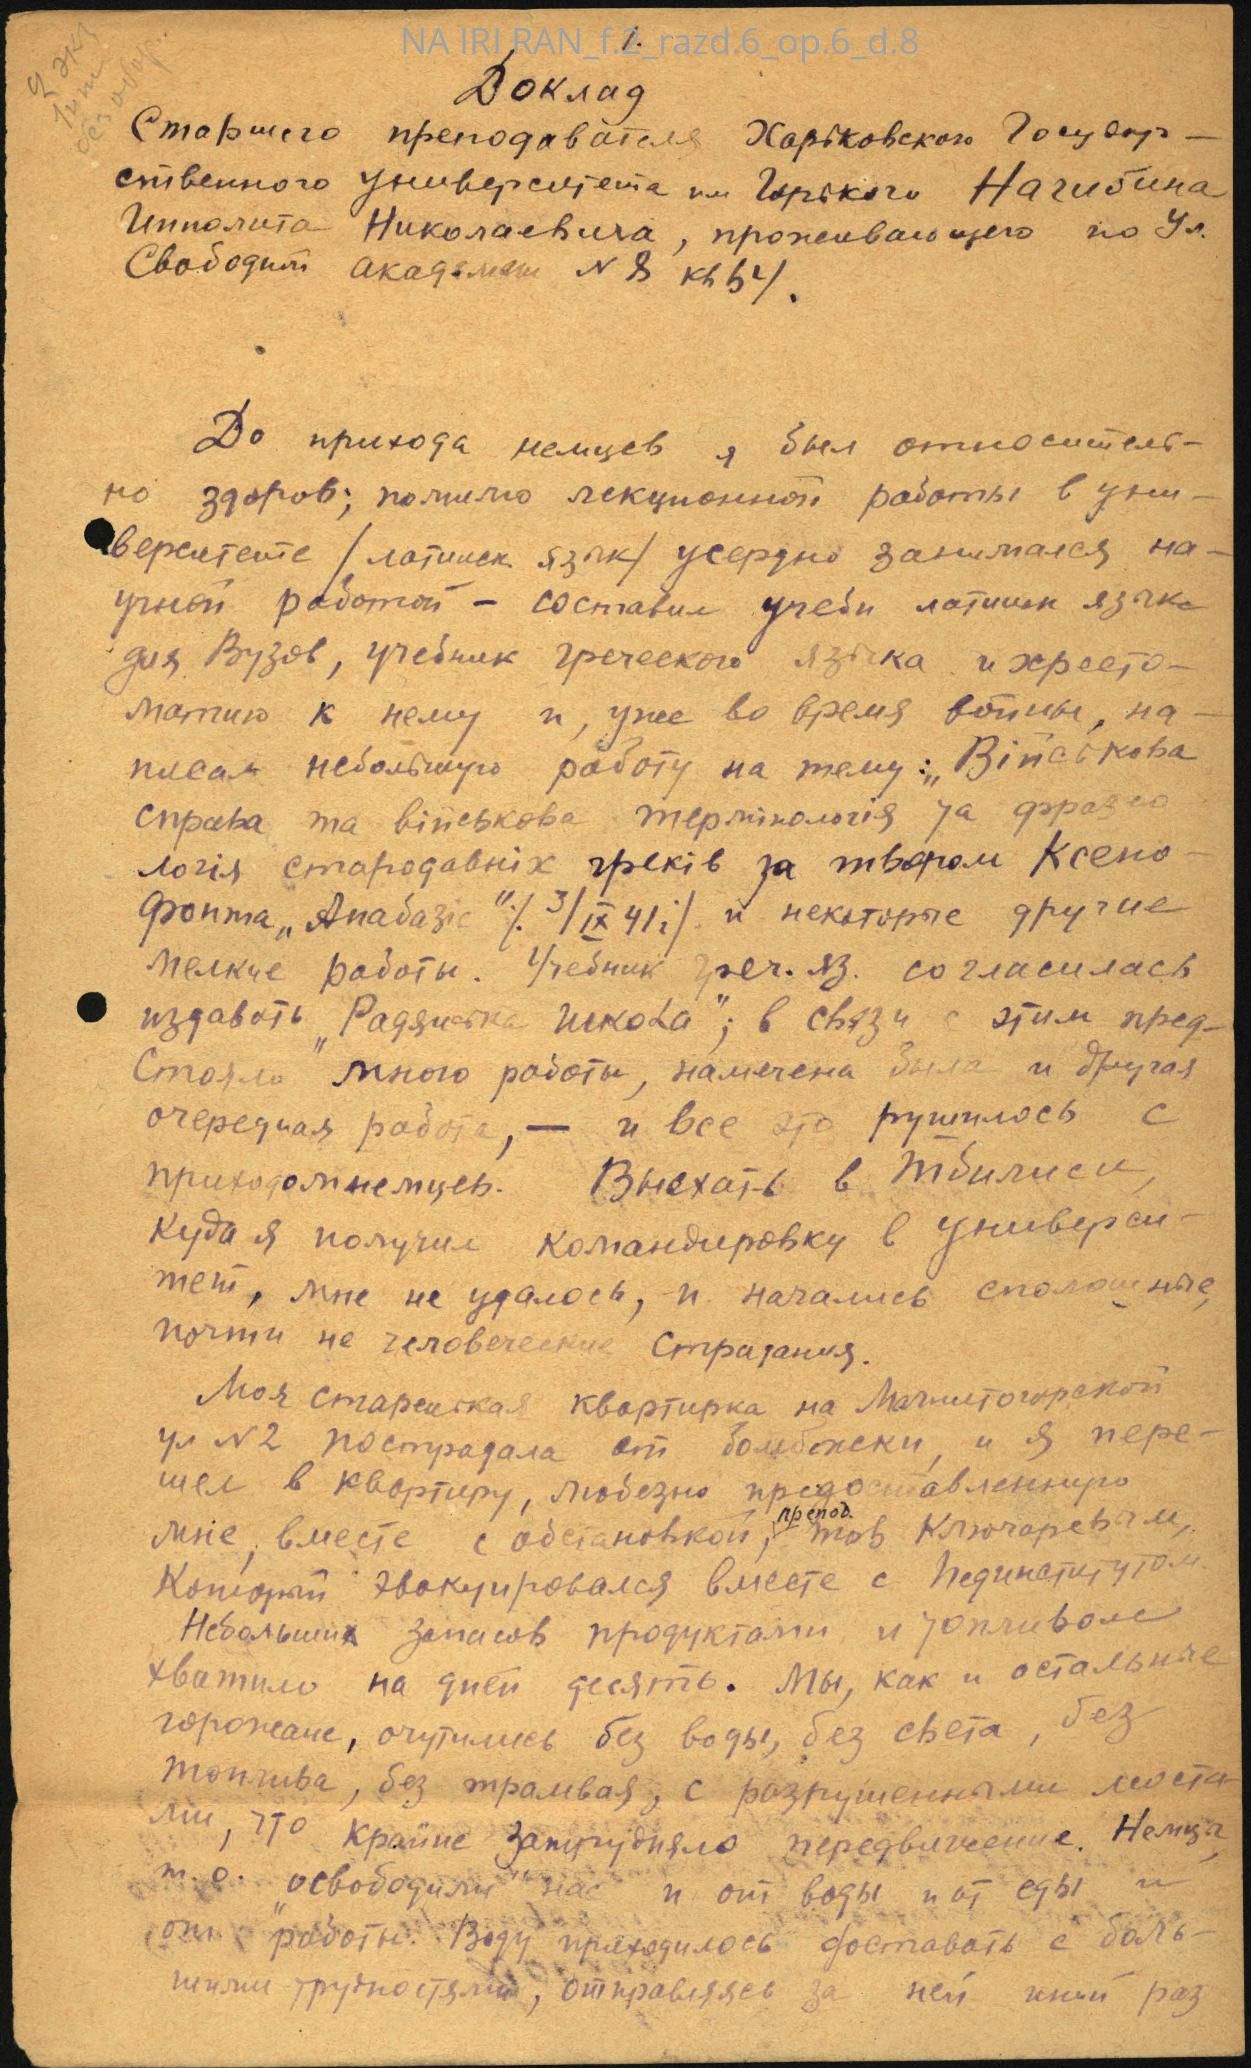 NA IRI RAN_f.2_razd.6_op.6_d.8
1.
Доклад
Старшего преподавателя Харьковского Государ-
ственного университета им Горького Нагибина
Ипполита Николаевича, проживающего по Ул.
Свободной академии N 8 кв
До прихода немцев я был относитель-
но здоров; помимо лекционной работы в уни-
верситете /латинск. язык/ усердно занимался на-
учной работой – составил учебн латинск языка
для Вузов, учебник греческого языка и хресто-
матию к нему и, уже во время войны, на-
писал небольшую работу на тему: „Військова
справа та військова термінологія та фразео
логія стародавніх греків за твором Ксено-
фонта „Анабазіс" /. 3/IX 41 / и некоторые другие
мелкие работы. Учебник греч. яз. согласилась
издавать „Радянська школа"; в связи с этим пред-
стояло много работы, намечена была и другая
очередная работа, — и все это рушилось с
приходом немцев. Выехать в Тбилиси,
куда я получил командировку в универси-
тет, мне не удалось, и начались сплошные,
почти не человеческие страдания.
Моя старенькая квартирка на Магнитогорской
ул N 2 пострадала от бомбежки, и я пере-
шел в квартиру, любезно предоставленную
мне, вместе с обстановкой, препод. тов Ключаревым,
который эвакуировался вместе с Пединститутом.
Небольших запасов продуктами и топливом
хватило на дней десять. Мы, как и остальные
горожане, очутились без воды, без света, без
топлива, без трамвая, с разрушенными моста-
ми, что крайне затрудняло передвижение. Немцы,
т. о. „освободили" нас и от воды и от еды и
от работы. Воду приходилось доставать с боль-
шими трудностями, отправляясь за ней иной раз